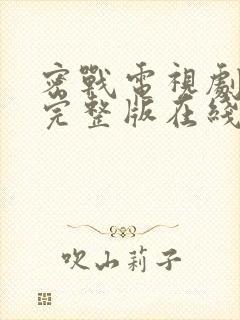 密戰電視劇
完整版在綫
吹山莉子